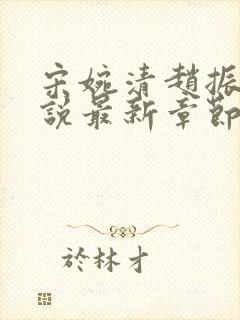 宋婉清趙振
說最新章節
於林才